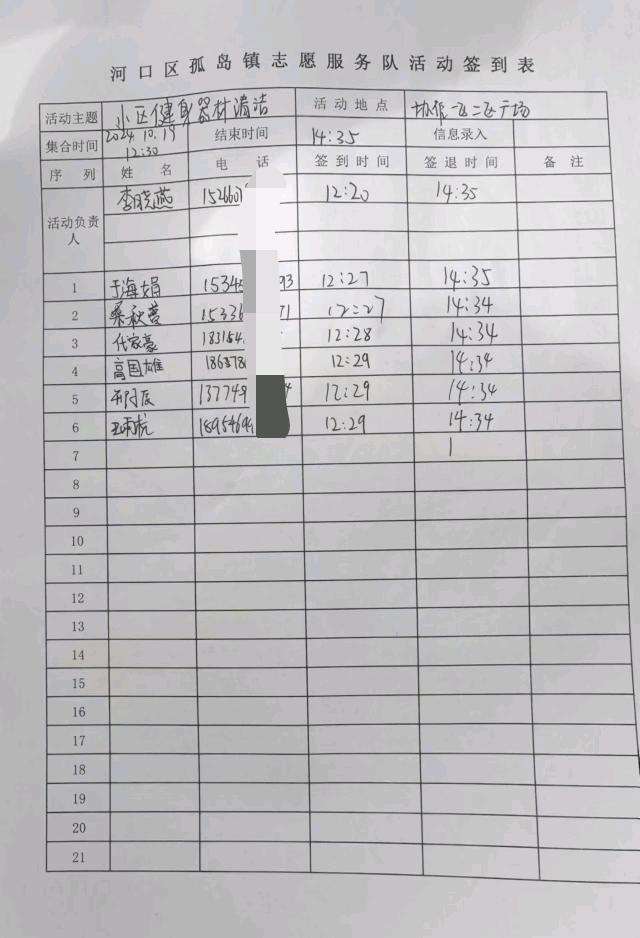 河口区孤岛镇志愿服务队活动签到表
活动主题 小区健身器材清洁 活动地点 广场
集合时间 2024.10.19 12:30 结束时间 14:35 信息录入
序列 姓名 电话 签到时间 签退时间 备注
活动负责人 李晓燕 152660 12:20 14:35
1 于海娟 15345 93 12:27 14:35
2 桑秋蓉 15336 71 12:27 14:34
3 代家豪 183154 12:28 14:34
4 高国雄 186878 12:29 14:34
5 137749 12:29 14:34
6 18954694 12:29 14:34
7
8
9
10
11
12
13
14
15
16
17
18
19
20
21